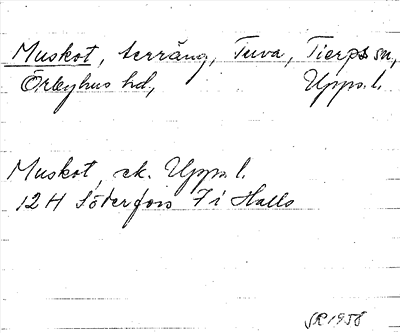 Muskot, terräng, Tuva, Tierps sn,
Örbyhus hd, Upps.l.
Muskot, ek. Upps.l.
12H Söderfors 7i Halls
SR 1958